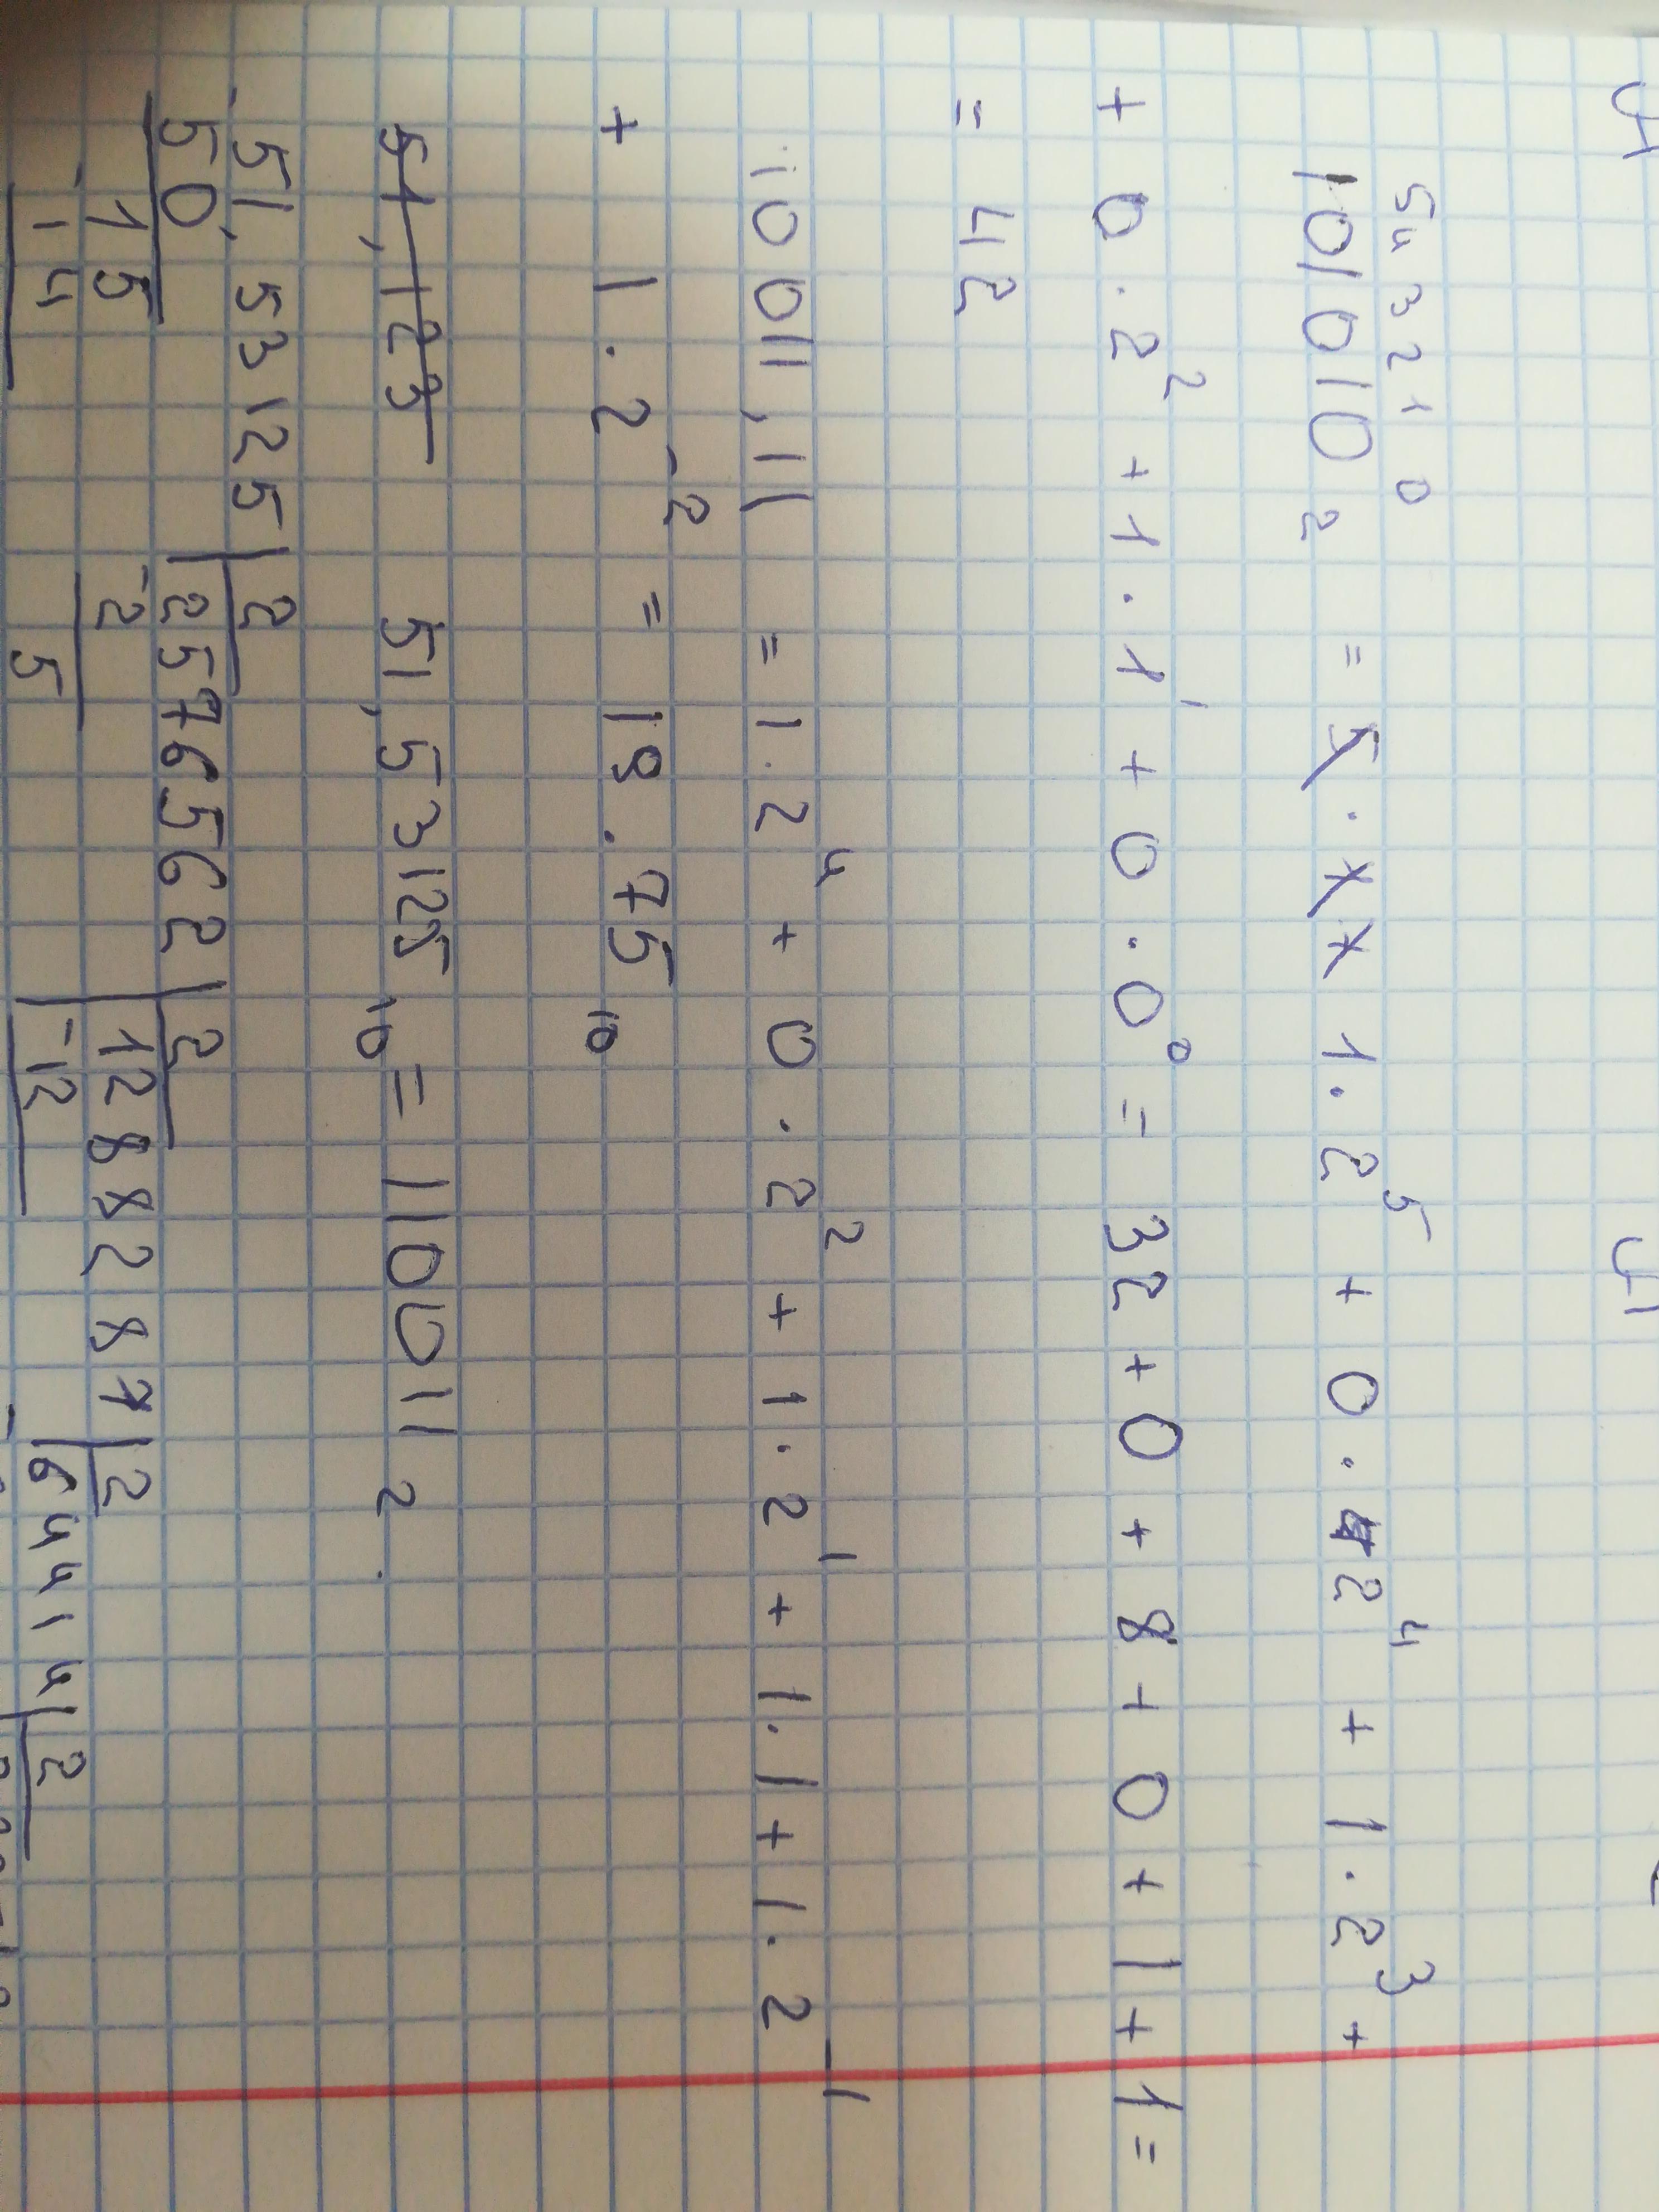 5 4 3 2 1 0
101010₂ = 1·2⁵ + 0·2⁴ + 1·2³ +
+ 0·2² + 1·1¹ + 0·0⁰ = 32 + 0 + 8 + 0 + 1 + 1 =
= 42
10011,11 = 1·2⁴ + 0·2² + 1·2¹ + 1·1 + 1·2⁻¹
+ 1·2⁻² = 19.75₁₀
51,123 51,53125₁₀ = 110011₂.
-51,53125 | 2
50 | 25765621 | 2
-15 -2 | 1288287 | 2
14 5 -12 | 644141 | 2